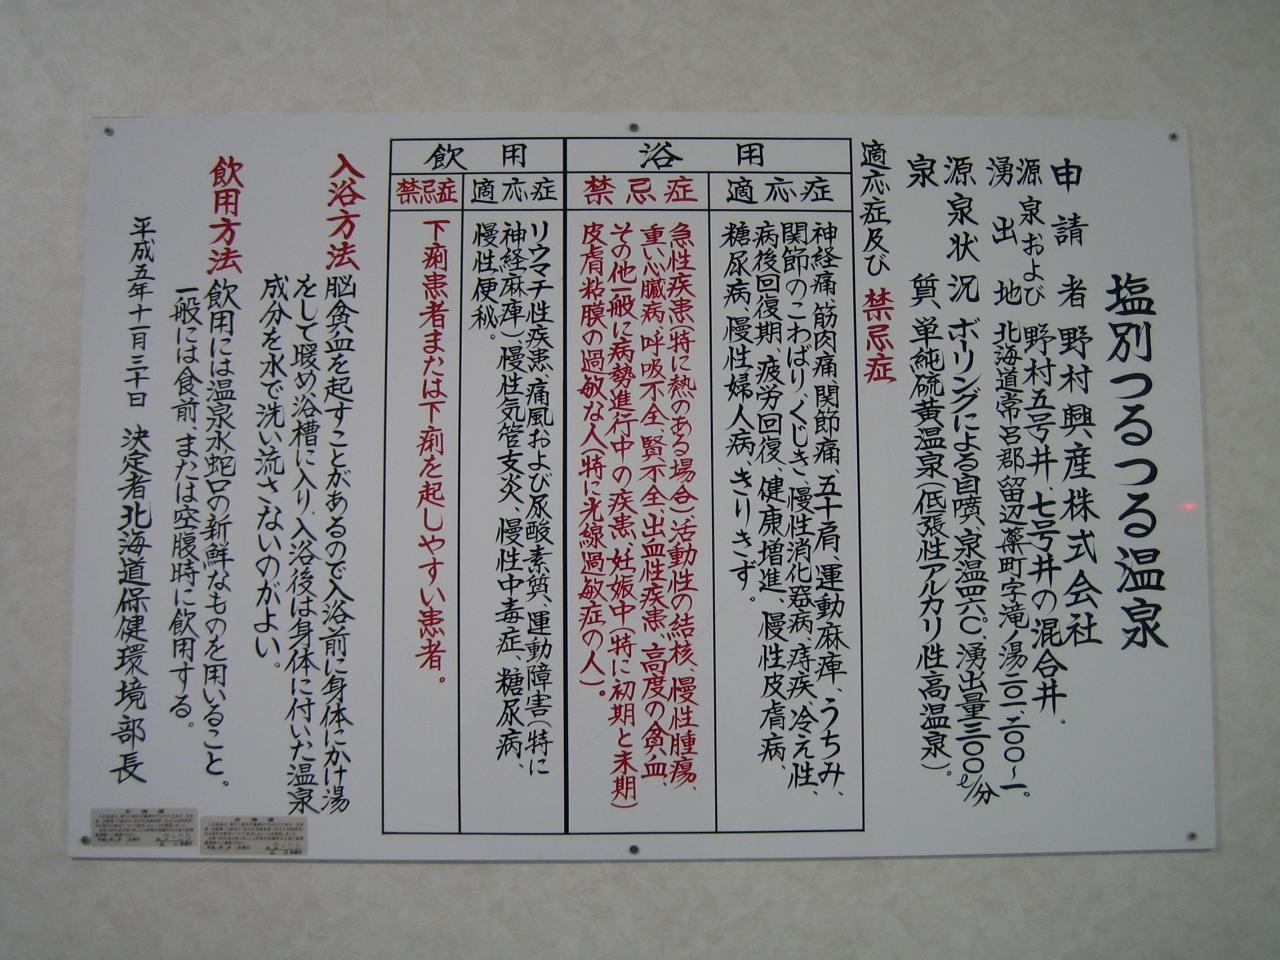 塩別つるつる温泉
申請者 野村興産株式会社
源泉および 野村五号井、七号井の混合井。
湧出地 北海道常呂郡留辺蘂町字滝ノ湯二〇一、二〇〇~一。
源泉状況 ボーリングによる自噴、泉温四六℃、湧出量三〇〇ℓ/分
泉質 単純硫黄温泉(低張性アルカリ性高温泉)。
適応症及び 禁忌症
浴用
適応症
神経痛、筋肉痛、関節痛、五十肩、運動麻痺、うちみ、
関節のこわばり、くじき、慢性消化器病、痔疾、冷え性、
病後回復期、疲労回復、健康増進、慢性皮膚病、
糖尿病、慢性婦人病、きりきず。
禁忌症
急性疾患(特に熱のある場合)活動性の結核、慢性腫瘍、
重い心臓病、呼吸不全、賢不全、出血性疾患、高度の貧血、
その他一般に病勢進行中の疾患、妊娠中(特に初期と末期)
皮膚粘膜の過敏な人(特に光線過敏症の人)。
飲用
適応症
リウマチ性疾患、痛風および尿酸素質、運動障害(特に
神経麻痺)、慢性気管支炎、慢性中毒症、糖尿病、
慢性便秘。
禁忌症
下痢患者または下痢を起しやすい患者。
入浴方法 脳貧血を起すことがあるので入浴前に身体にかけ湯
をして暖め浴槽に入り、入浴後は身体に付いた温泉
成分を水で洗い流さないのがよい。
飲用方法 飲用には温泉水蛇口の新鮮なものを用いること。
一般には食前、または空腹時に飲用する。
平成五年十一月三十日 決定者北海道保健環境部長
北海道
北海道